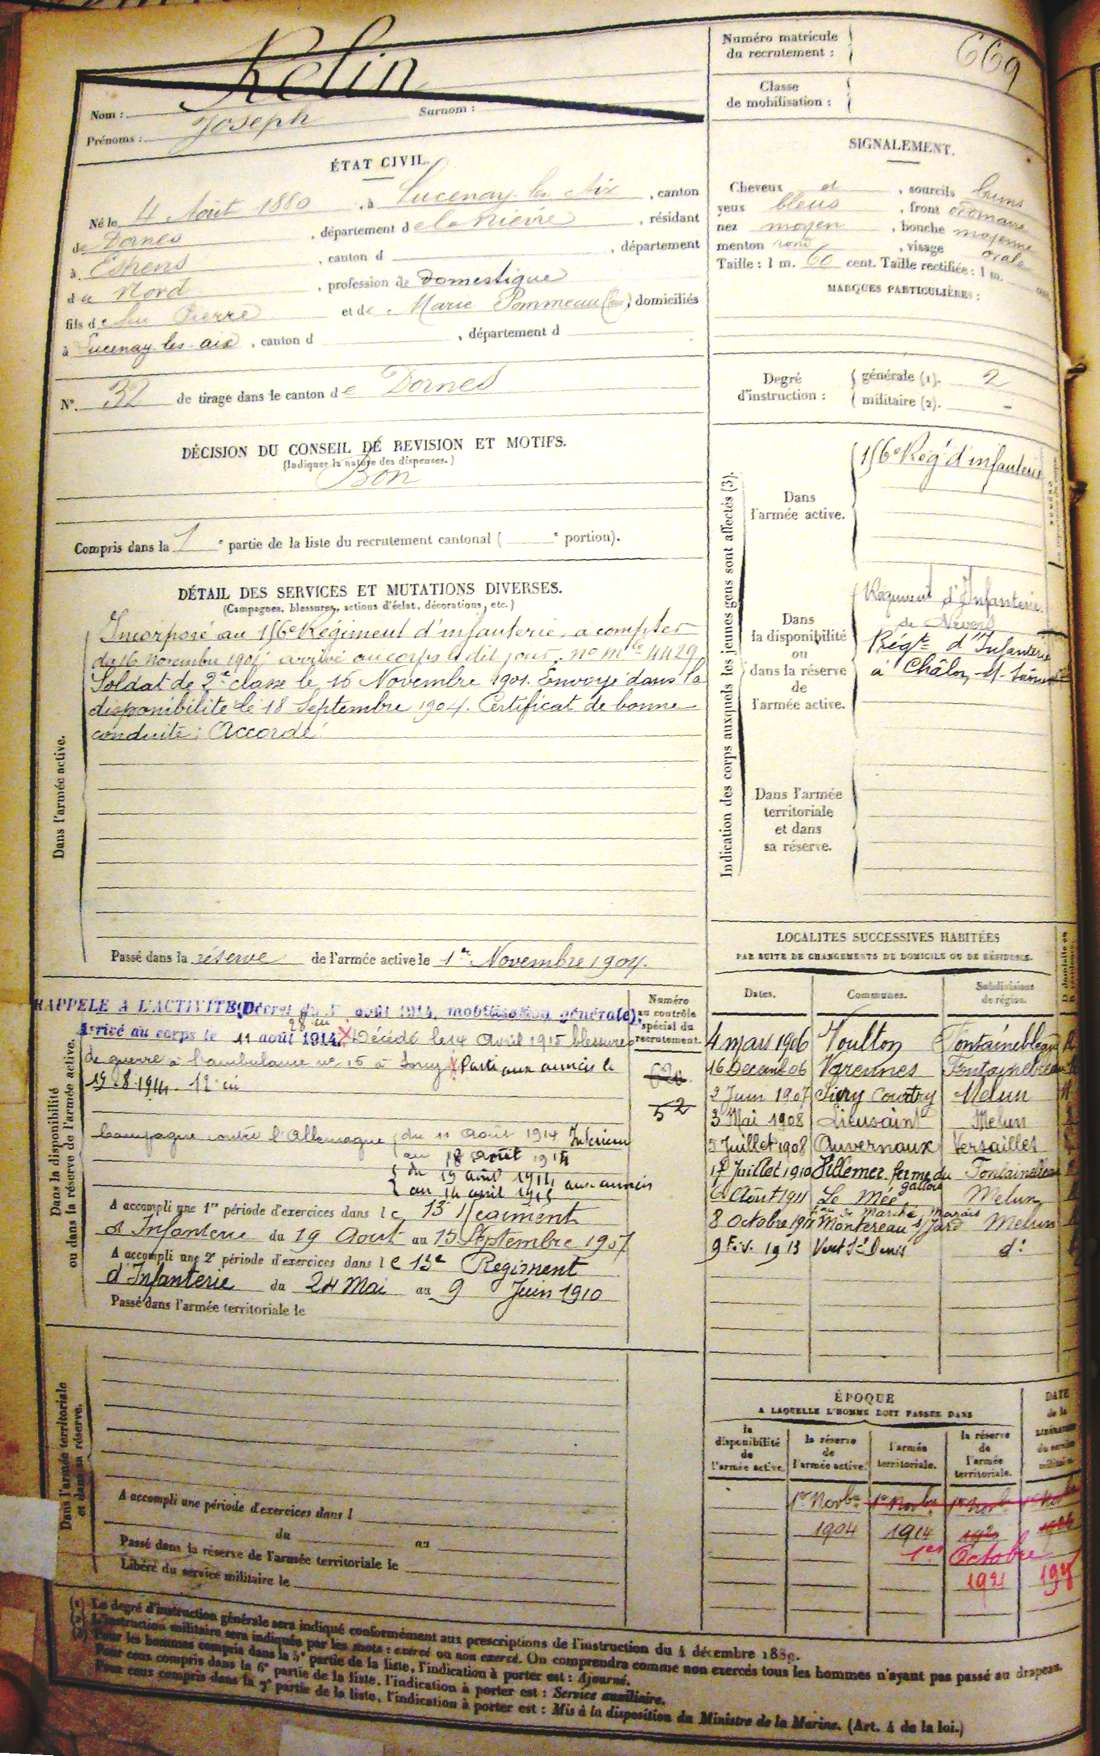 Numéro matricule
du recrutement :
669
Classe
de mobilisation :
Relin
Nom :
Surnom :
Prénoms : Joseph
ÉTAT CIVIL.
Né le 4 Août 1880, à Lucenay-les-Aix, canton
de Dornes, département de la Nièvre, résidant
à, canton d, département
d u Nord, profession de domestique
fils de feu Pierre et de Marie Pommeau, domiciliés
à Lucenay-les-aix, canton d, département d
N°. 32 de tirage dans le canton de Dornes
SIGNALEMENT.
Cheveux et, sourcils bruns
yeux bleus, front ordinaire
nez moyen, bouche moyenne
menton rond, visage ovale
Taille : 1 m. 60 cent. Taille rectifiée : 1 m. cent.
MARQUES PARTICULIÈRES :
Degré
d'instruction :
générale (1). 2
militaire (2). -
DÉCISION DU CONSEIL DE REVISION ET MOTIFS.
(Indiquer la nature des dispenses.)
Bon
Compris dans la 1e partie de la liste du recrutement cantonal ( e portion).
DÉTAIL DES SERVICES ET MUTATIONS DIVERSES.
(Campagnes, blessures, actions d'éclat, décorations, etc.)
Dans l'armée active.
Incorporé au 156e Régiment d'infanterie, a compter
du 16 Novembre 1901 arrivé au corps le dit jour, no mle 4429
Soldat de 2e classe le 16 Novembre 1901. Envoyé dans la
disponibilité le 18 Septembre 1904. Certificat de bonne
conduite : Accordé
Passé dans la réserve de l'armée active le 1er Novembre 1904.
Indication des corps auxquels les jeunes gens sont affectés (3).
Dans
l'armée active.
156e Rég' d'infanterie
Dans
la disponibilité
ou
dans la réserve
de
l'armée active.
Régiment d'Infanterie
de Nevers
Régt d'Infanterie
à Châlon s/ Saône
Dans l'armée
territoriale
et dans
sa réserve.
Dans la disponibilité
ou dans la réserve de l'armée active.
RAPPELÉ A L'ACTIVITÉ (Décret du 1er août 1914, mobilisation générale)
Arrivé au corps le 11 août 1914 X Décédé le 14 Avril 1915 blessures
de guerre à l'ambulance no 15 à X Parti aux armées le
19-8-1914.
Campagne contre l'Allemagne { du 11 Août 1914 Intérieur
au 18 Août 1914
{ du 19 août 1914 aux armées
au 14 avril 1915
A accompli une 1re période d'exercices dans le 13e Régiment
d'Infanterie du 19 Août au 15 Septembre 1907
A accompli une 2e période d'exercices dans le 13e Régiment
d'Infanterie du 24 Mai au 9 Juin 1910
Passé dans l'armée territoriale le
Numéro
au contrôle
spécial du
recrutement.
52
LOCALITÉS SUCCESSIVES HABITÉES
PAR SUITE DE CHANGEMENTS DE DOMICILE OU DE RÉSIDENCE.
Dates. Communes. Subdivisions
de région.
4 mars 1906 Voulton Fontainebleau
16 Décemb 06 Varennes Fontainebleau
2 Juin 1907 Sivry Courtry Melun
3 Mai 1908 Lieusaint Melun
5 Juillet 1908 Auvernaux Versailles
17 Juillet 1910 Villemer ferme du Fontainebleau
6 Août 1911 Le Mée Melun
8 Octobre 1911 Montereau s/ Jard Melun
9 Fév. 1913 Vert St Denis do
Dans l'armée territoriale
et dans sa réserve.
A accompli une période d'exercices dans l
du au
Passé dans la réserve de l'armée territoriale le
Libéré du service militaire le
ÉPOQUE
A LAQUELLE L'HOMME DOIT PASSER DANS
la
disponibilité
de
l'armée active.
la réserve
de
l'armée active.
l'armée
territoriale.
la réserve
de
l'armée
territoriale.
DATE
de la
LIBÉRATION
du service
militaire.
1er Novbre 1er Novbre 1er Novb
1904 1914
1er Octobre
1921
(1) Le degré d'instruction générale sera indiqué conformément aux prescriptions de l'instruction du 4 décembre 1889.
(2) L'instruction militaire sera indiquée par les mots : exercé ou non exercé. On comprendra comme non exercés tous les hommes n'ayant pas passé au drapeau.
(3) Pour les hommes compris dans la 5e partie de la liste, l'indication à porter est : Ajourné.
Pour ceux compris dans la 6e partie de la liste, l'indication à porter est : Service auxiliaire.
Pour ceux compris dans la 7e partie de la liste, l'indication à porter est : Mis à la disposition du Ministre de la Marine. (Art. 4 de la loi.)